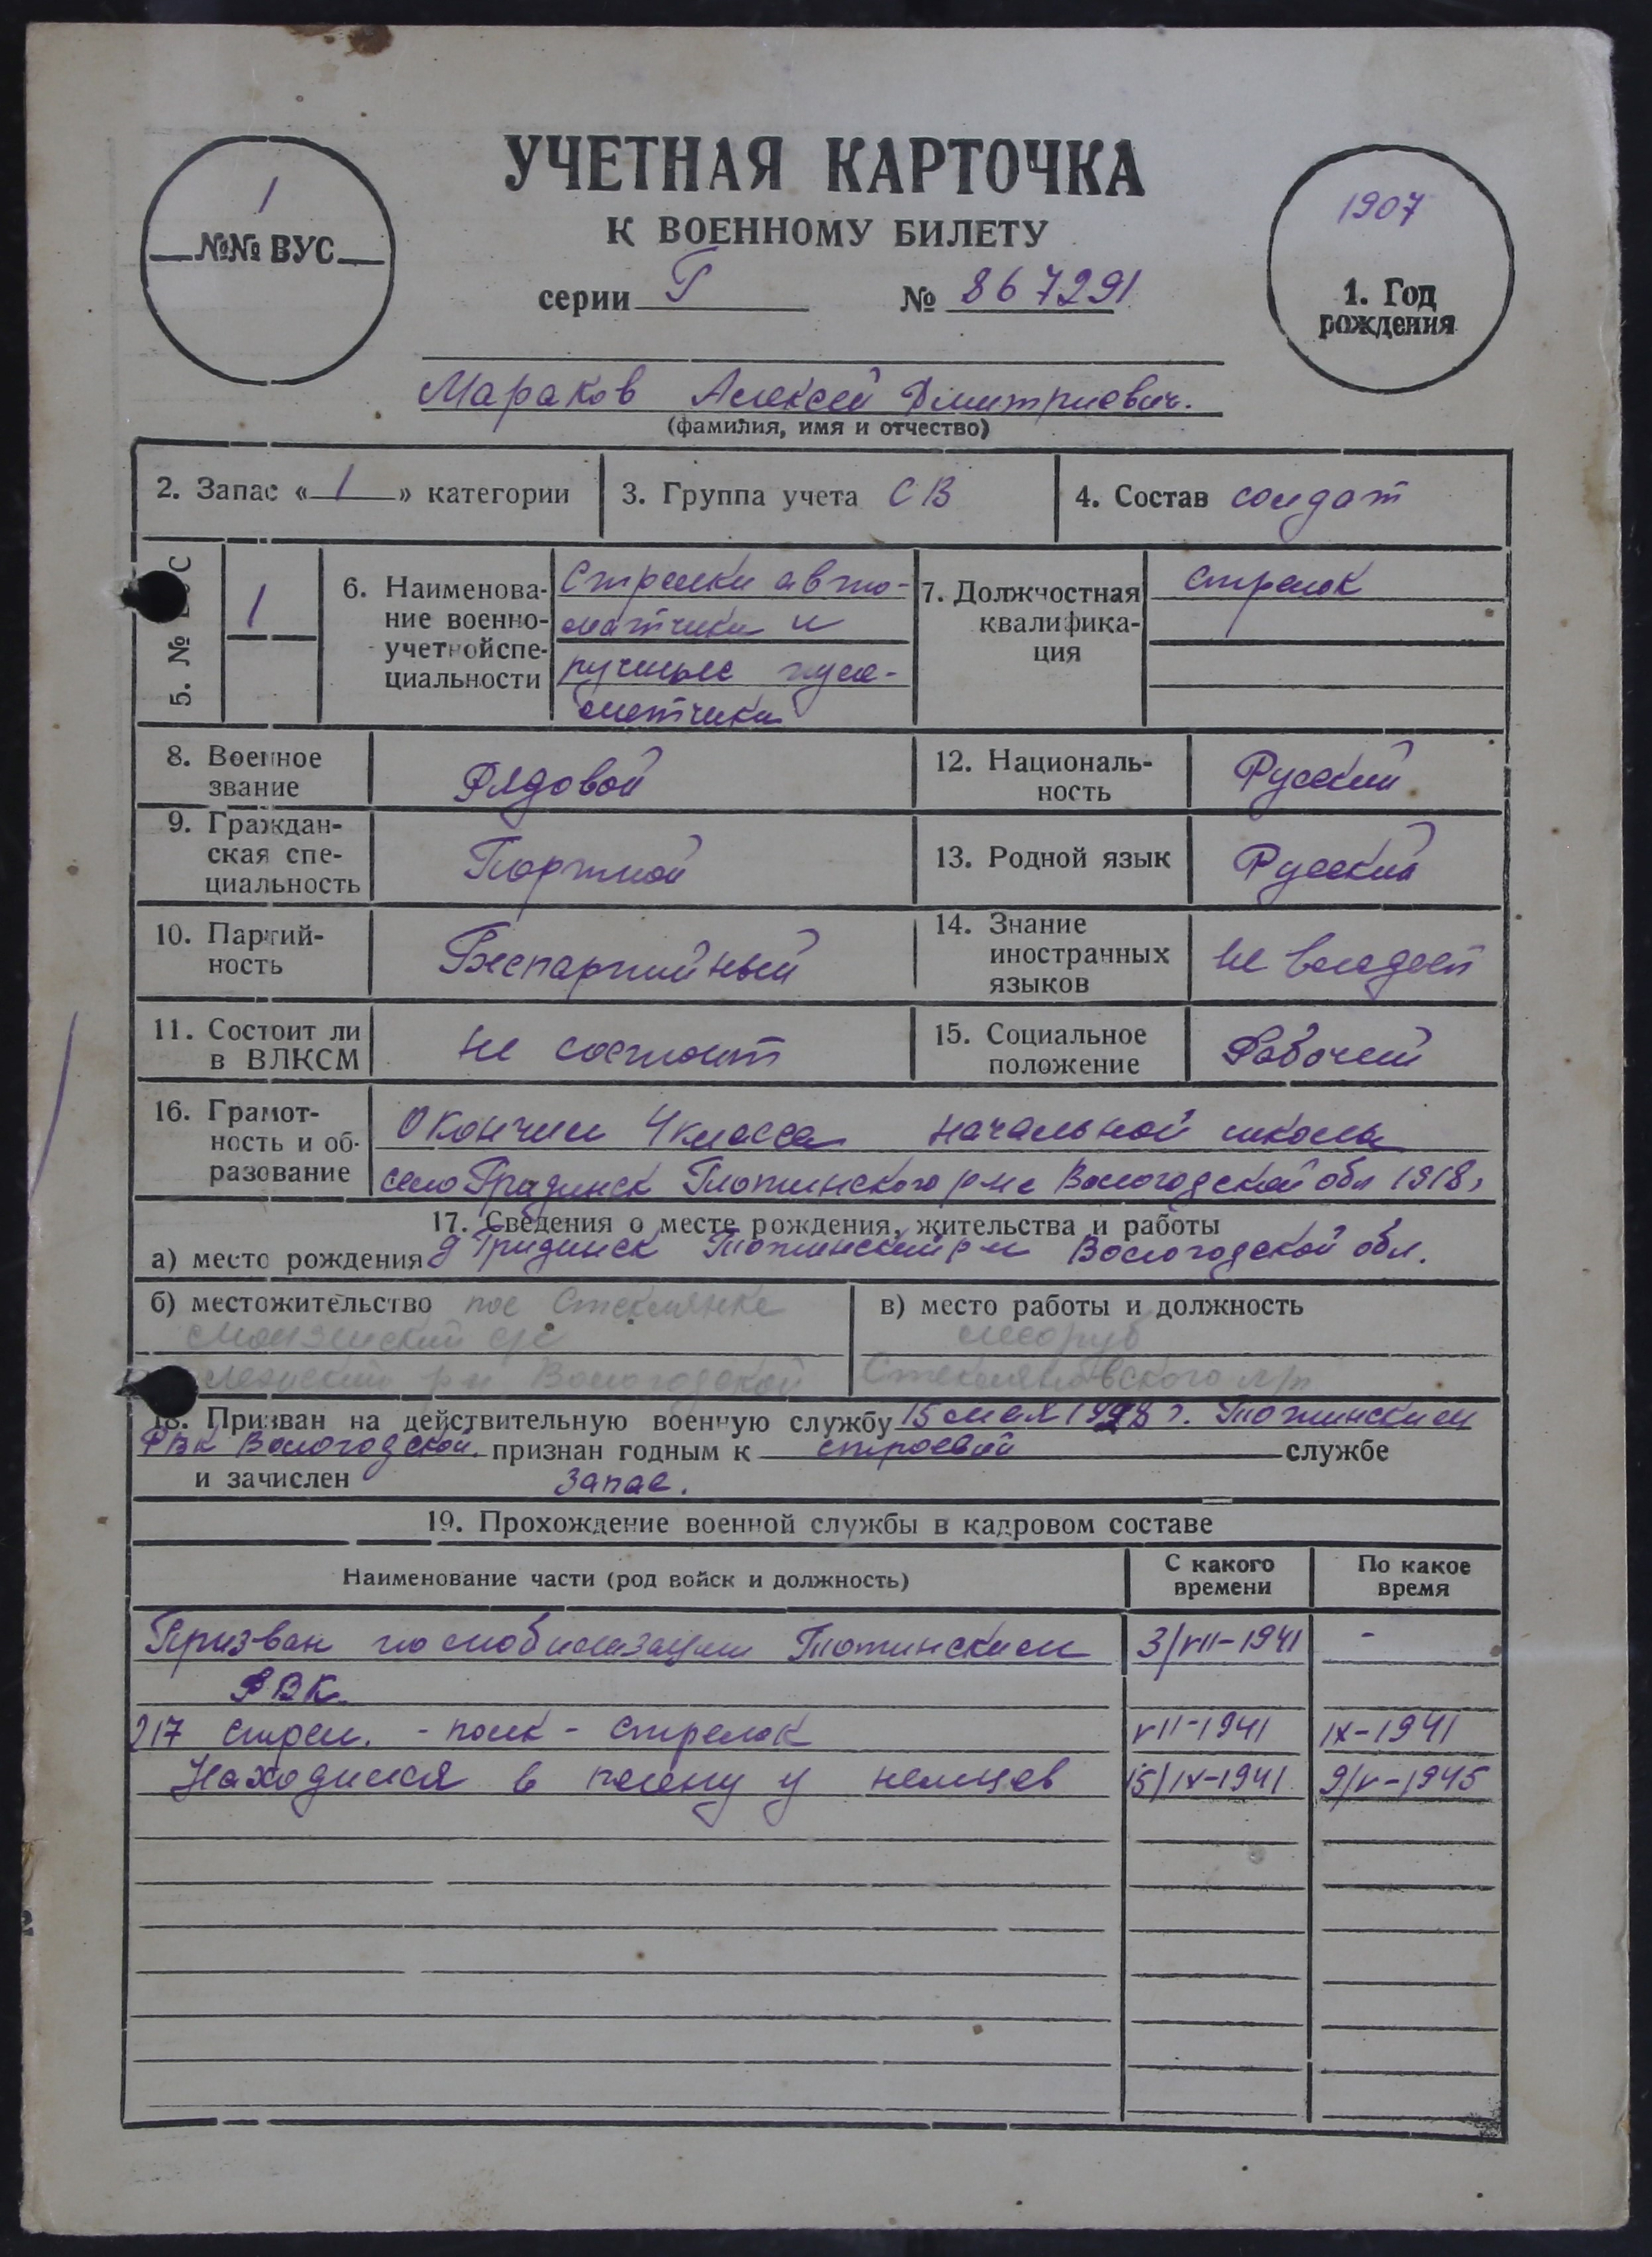 УЧЕТНАЯ КАРТОЧКА
К ВОЕННОМУ БИЛЕТУ
1
№№ ВУС
серии Г № 867291
1907
1. Год
рождения
Мараков Алексей Дмитриевич.
(фамилия, имя и отчество)
2. Запас « 1 » категории
3. Группа учета СВ
4. Состав солдат
5. № ВУС
1
6. Наименова-
ние военно-
учетной спе-
циальности
Стрелки авто-
матчики и
ручные пуле-
метчики
7. Должностная
квалифика-
ция
стрелок
8. Военное
звание
Рядовой
12. Националь-
ность
Русский
9. Граждан-
ская спе-
циальность
Портной
13. Родной язык
Русский
10. Партий-
ность
Беспартийный
14. Знание
иностранных
языков
не владеет
11. Состоит ли
в ВЛКСМ
не состоит
15. Социальное
положение
Рабочий
16. Грамот-
ность и об-
разование
Окончил 4 класса начальной школы
село Гридинск Тотьминского р-на Вологодской обл 1918г
17. Сведения о месте рождения, жительства и работы
а) место рождения д Гридинск Тотьминский р-н Вологодской обл.
б) местожительство пос Стеклянка
с/с
р-н Вологодской
в) место работы и должность
лесоруб
Стекляновского л/п
18. Призван на действительную военную службу 15 мая 1928 г. Тотьминским
РВК Вологодской. признан годным к строевой службе
и зачислен запас.
19. Прохождение военной службы в кадровом составе
Наименование части (род войск и должность)
С какого
времени
По какое
время
Призван по мобилизации Тотьминским 3/VII-1941 -
РВК.
217 стрел. - полк - стрелок VII-1941 IX-1941
Находился в плену у немцев 15/IX-1941 9/V-1945